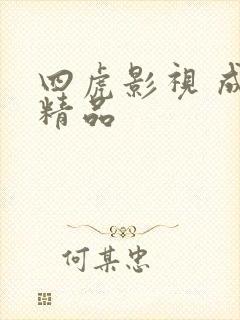 四虎影視 成
精品
何某忠